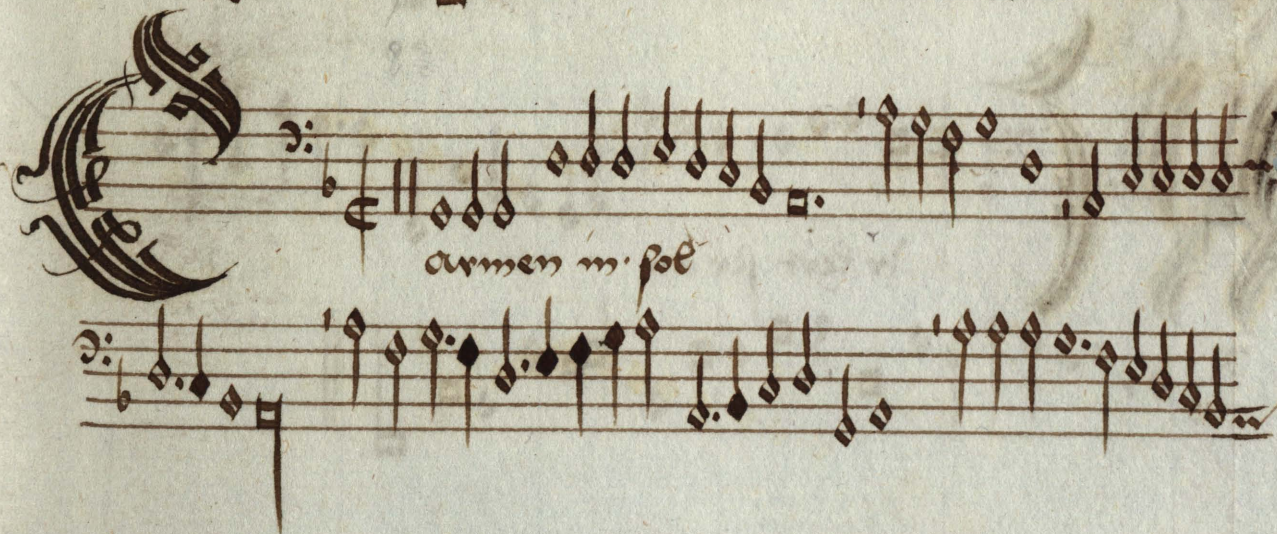 Carmen in sol